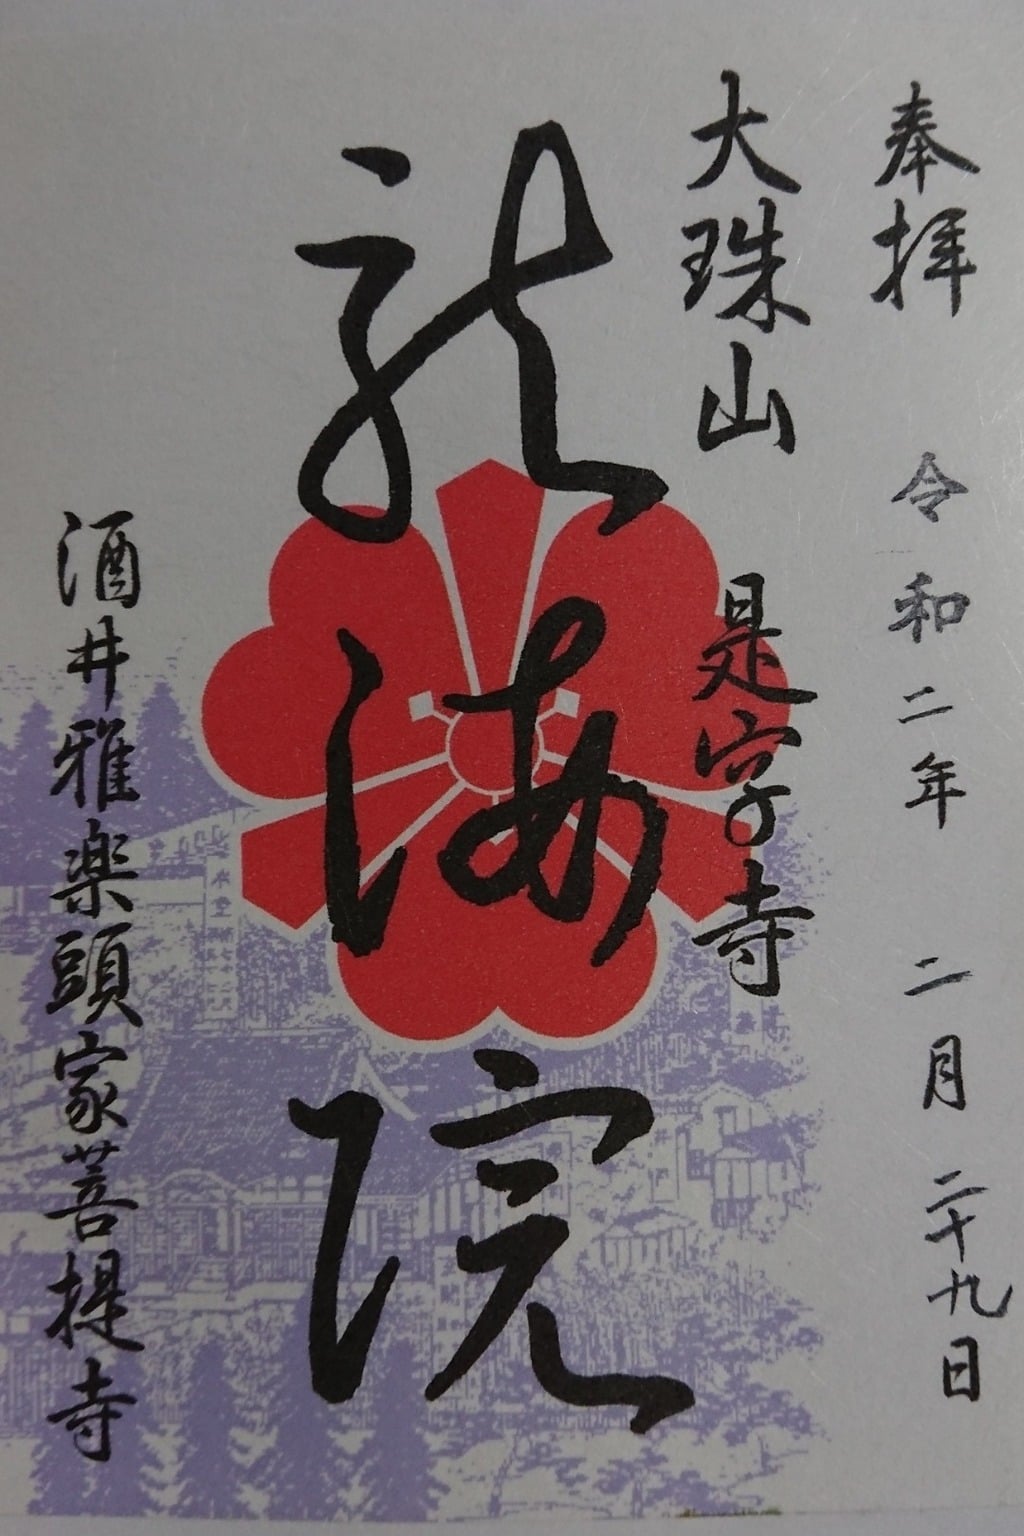 奉拝 令和二年 二月二十九日
大珠山 是字寺
龍海院
酒井雅楽頭家菩提寺